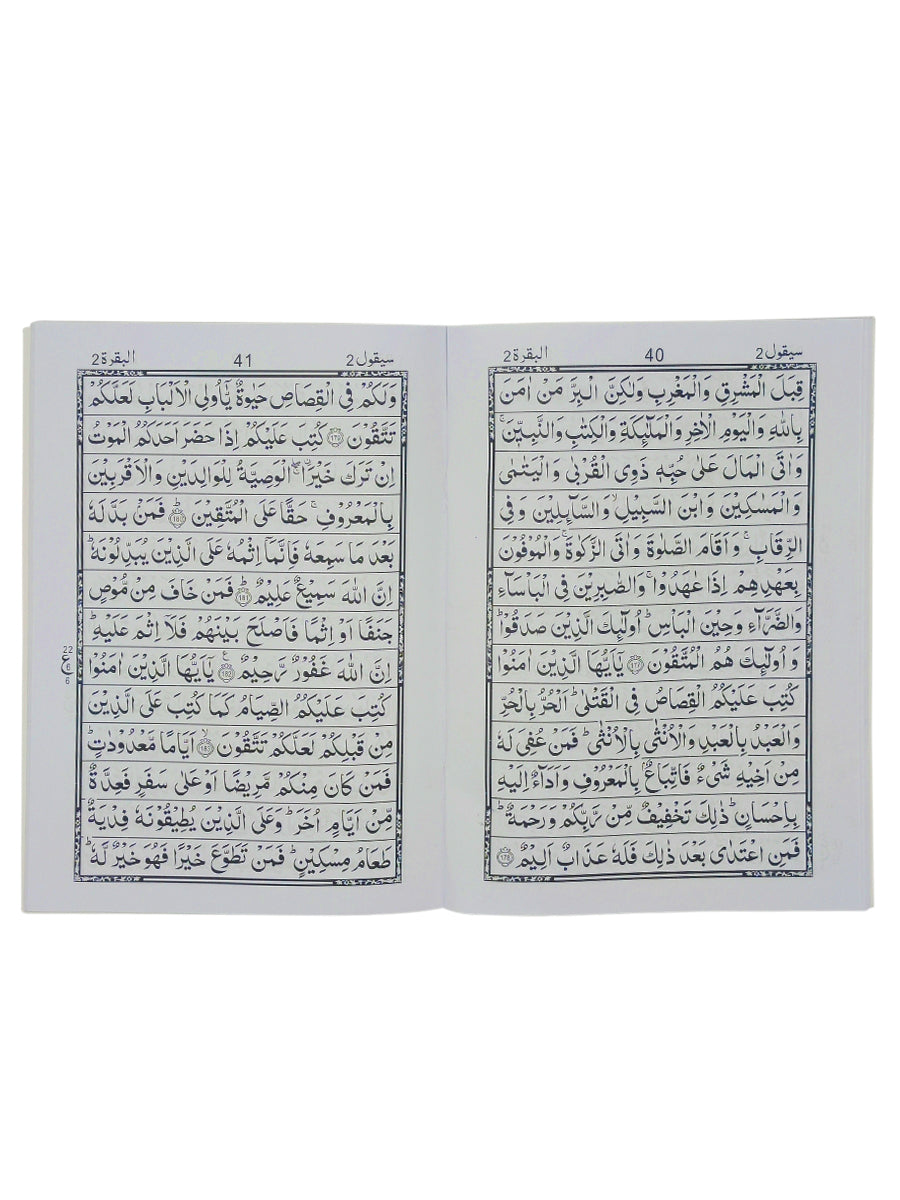 سیقول 2 40 البقرة 2
قِبَلَ الْمَشْرِقِ وَالْمَغْرِبِ وَلٰكِنَّ الْبِرَّ مَنْ اٰمَنَ
بِاللّٰهِ وَالْيَوْمِ الْاٰخِرِ وَالْمَلٰٓئِكَةِ وَالْكِتٰبِ وَالنَّبِيّٖنَ ۚ
وَاٰتَى الْمَالَ عَلٰى حُبِّهٖ ذَوِى الْقُرْبٰى وَالْيَتٰمٰى
وَالْمَسٰكِيْنَ وَابْنَ السَّبِيْلِ ۙ وَالسَّآئِلِيْنَ وَفِى
الرِّقَابِ ۚ وَاَقَامَ الصَّلٰوةَ وَاٰتَى الزَّكٰوةَ ۚ وَالْمُوْفُوْنَ
بِعَهْدِهِمْ اِذَا عٰهَدُوْا ۚ وَالصّٰبِرِيْنَ فِى الْبَاْسَآءِ
وَالضَّرَّآءِ وَحِيْنَ الْبَاْسِ ؕ اُولٰٓئِكَ الَّذِيْنَ صَدَقُوْا ؕ
وَاُولٰٓئِكَ هُمُ الْمُتَّقُوْنَ 177 يٰٓاَيُّهَا الَّذِيْنَ اٰمَنُوْا
كُتِبَ عَلَيْكُمُ الْقِصَاصُ فِى الْقَتْلٰى ؕ اَلْحُرُّ بِالْحُرِّ
وَالْعَبْدُ بِالْعَبْدِ وَالْاُنْثٰى بِالْاُنْثٰى ؕ فَمَنْ عُفِىَ لَهٗ
مِنْ اَخِيْهِ شَىْءٌ فَاتِّبَاعٌۢ بِالْمَعْرُوْفِ وَاَدَآءٌ اِلَيْهِ
بِاِحْسَانٍ ؕ ذٰلِكَ تَخْفِيْفٌ مِّنْ رَّبِّكُمْ وَرَحْمَةٌ ؕ
فَمَنِ اعْتَدٰى بَعْدَ ذٰلِكَ فَلَهٗ عَذَابٌ اَلِيْمٌ 178
سیقول 2 41 البقرة 2
وَلَكُمْ فِى الْقِصَاصِ حَيٰوةٌ يّٰٓاُولِى الْاَلْبَابِ لَعَلَّكُمْ
تَتَّقُوْنَ 179 كُتِبَ عَلَيْكُمْ اِذَا حَضَرَ اَحَدَكُمُ الْمَوْتُ
اِنْ تَرَكَ خَيْرَا ۖۚ اۨلْوَصِيَّةُ لِلْوَالِدَيْنِ وَالْاَقْرَبِيْنَ
بِالْمَعْرُوْفِ ۚ حَقًّا عَلَى الْمُتَّقِيْنَ ؕ 180 فَمَنْۢ بَدَّلَهٗ
بَعْدَ مَا سَمِعَهٗ فَاِنَّمَآ اِثْمُهٗ عَلَى الَّذِيْنَ يُبَدِّلُوْنَهٗ ؕ
اِنَّ اللّٰهَ سَمِيْعٌ عَلِيْمٌ ؕ 181 فَمَنْ خَافَ مِنْ مُّوْصٍ
جَنَفًا اَوْ اِثْمًا فَاَصْلَحَ بَيْنَهُمْ فَلَآ اِثْمَ عَلَيْهِ ؕ
اِنَّ اللّٰهَ غَفُوْرٌ رَّحِيْمٌ 182 ع يٰٓاَيُّهَا الَّذِيْنَ اٰمَنُوْا
22 ع 6 6
كُتِبَ عَلَيْكُمُ الصِّيَامُ كَمَا كُتِبَ عَلَى الَّذِيْنَ
مِنْ قَبْلِكُمْ لَعَلَّكُمْ تَتَّقُوْنَ ۙ 183 اَيَّامًا مَّعْدُوْدٰتٍ ؕ
فَمَنْ كَانَ مِنْكُمْ مَّرِيْضًا اَوْ عَلٰى سَفَرٍ فَعِدَّةٌ
مِّنْ اَيَّامٍ اُخَرَ ؕ وَعَلَى الَّذِيْنَ يُطِيْقُوْنَهٗ فِدْيَةٌ
طَعَامُ مِسْكِيْنٍ ؕ فَمَنْ تَطَوَّعَ خَيْرًا فَهُوَ خَيْرٌ لَّهٗ ؕ